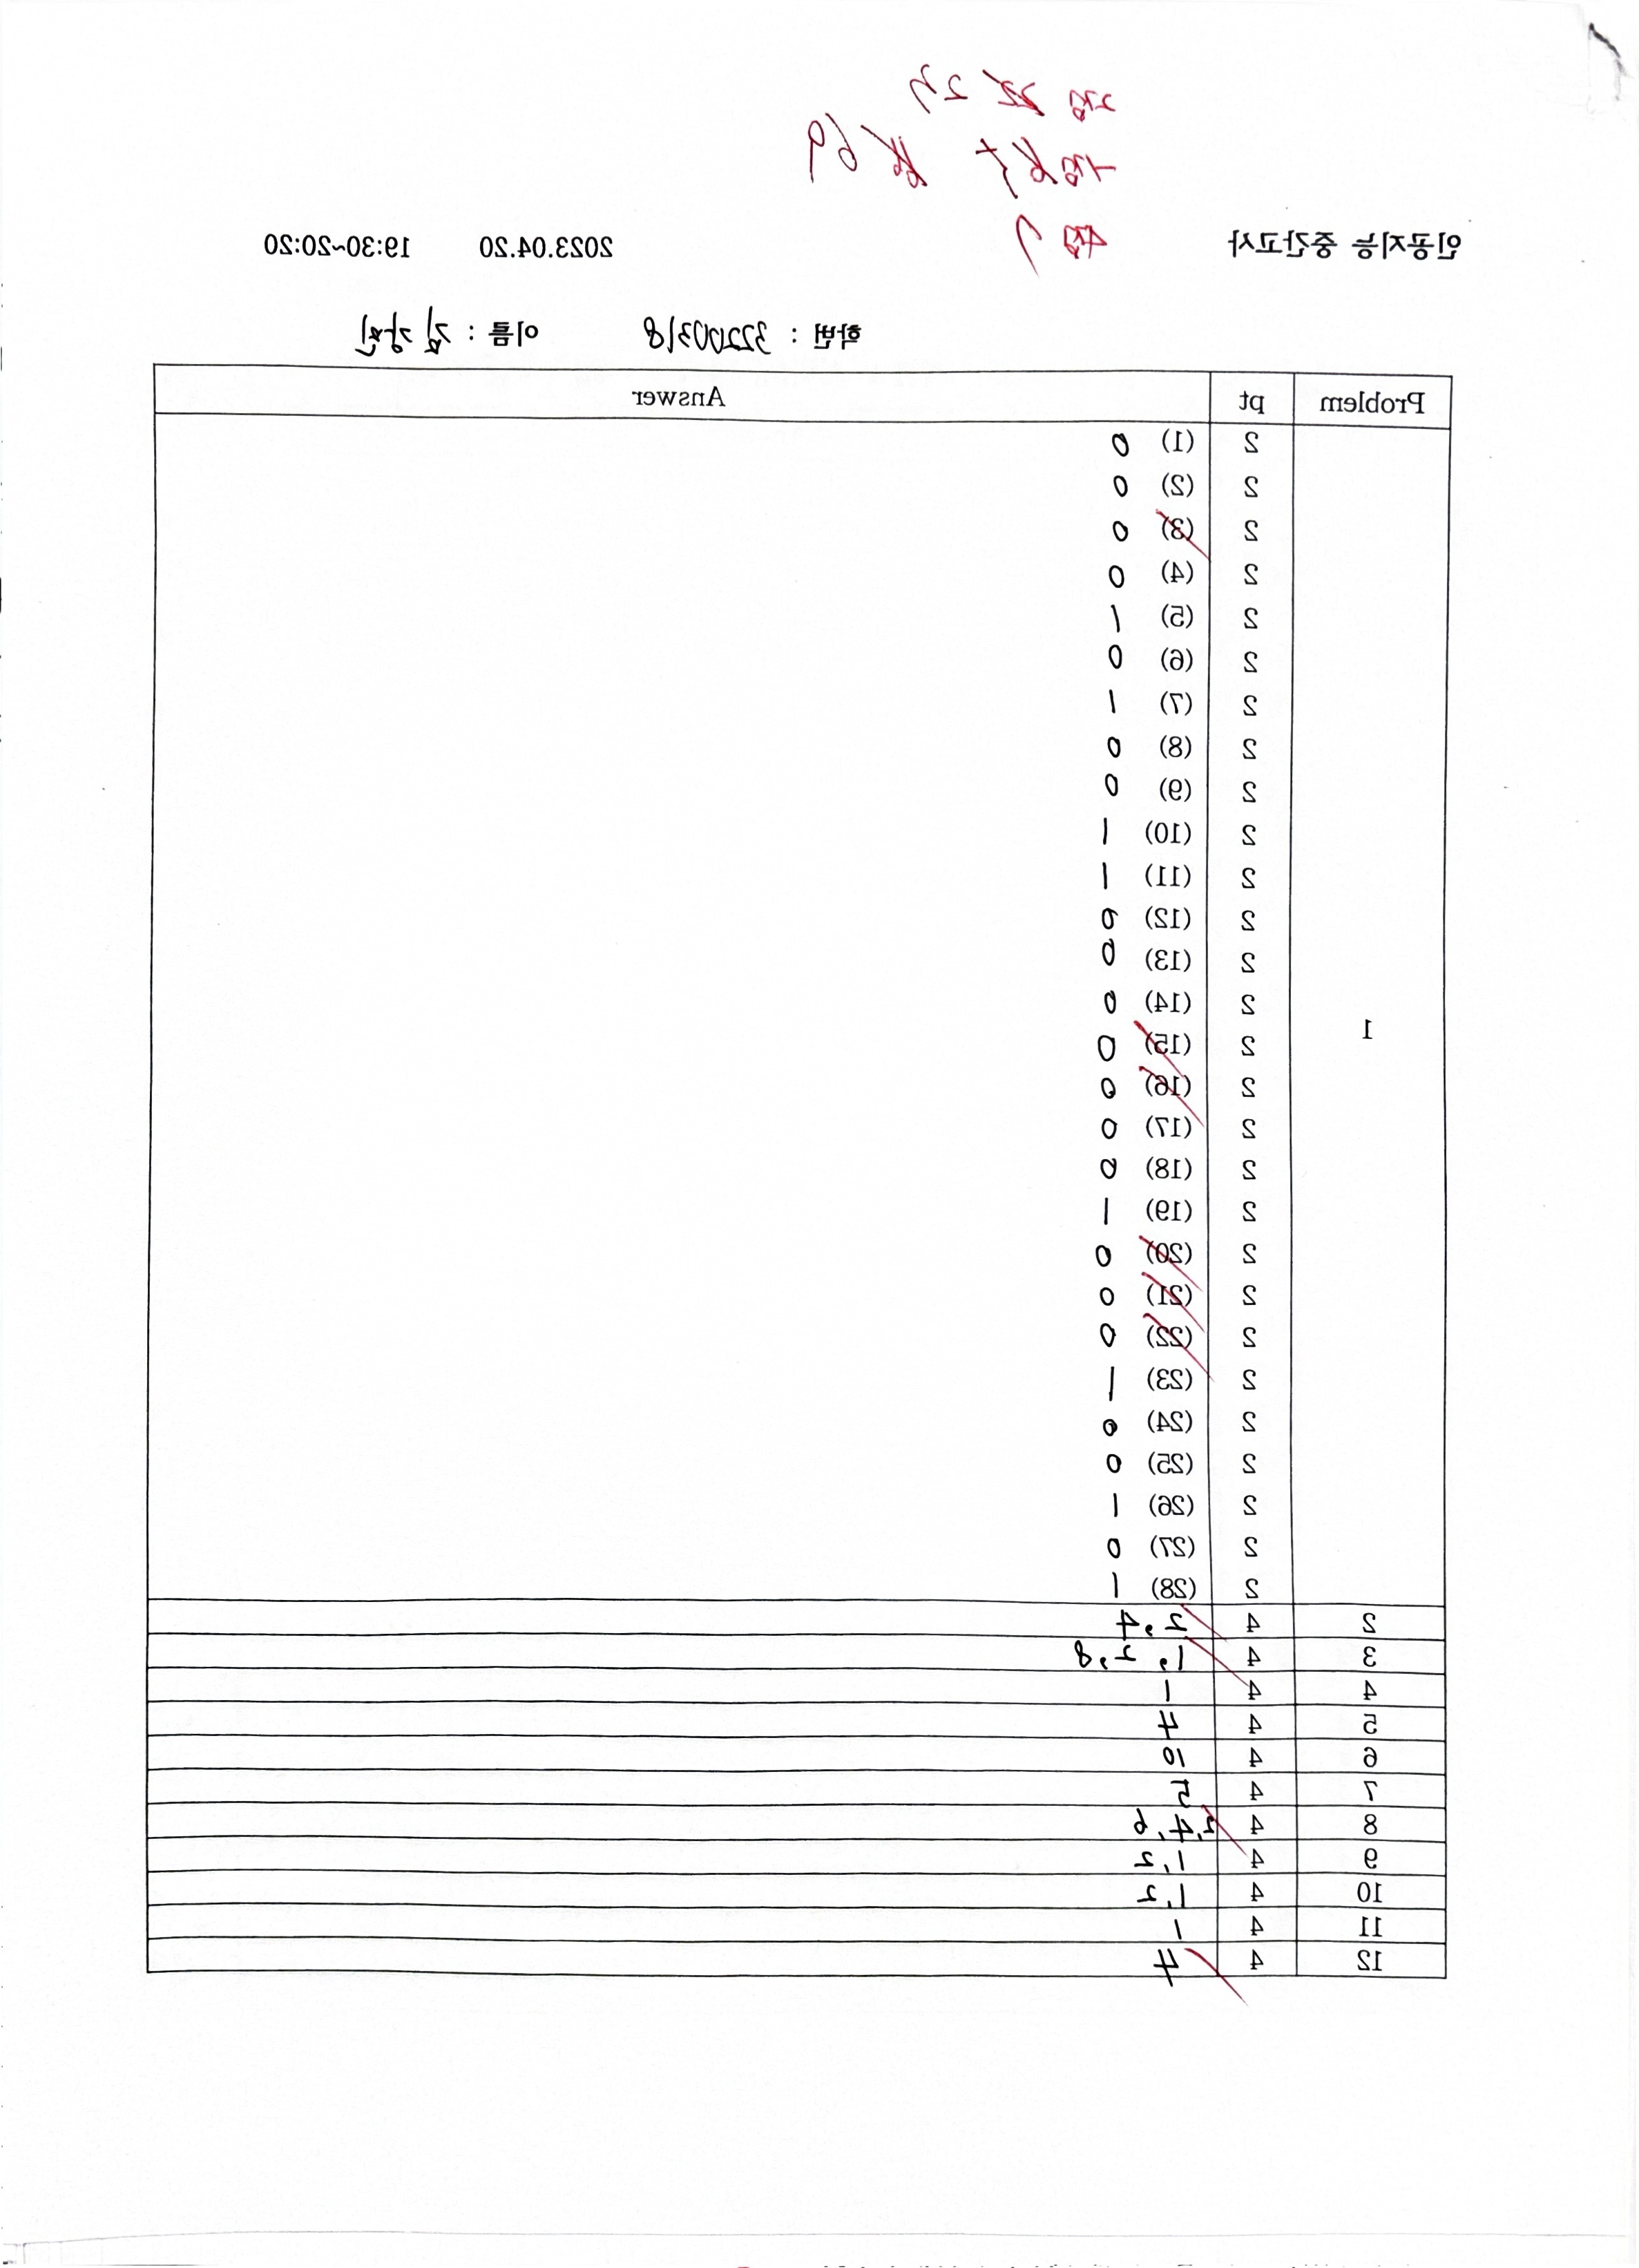 2점 23
69
4점 7
인공지능 중간고사 2023.04.20 19:30~20:20
학번 : 32200318 이름 : 김강민
Problem pt Answer
1
2 (1) 0
2 (2) 0
2 (3) 0
2 (4) 0
2 (5) 1
2 (6) 0
2 (7) 1
2 (8) 0
2 (9) 0
2 (10) 1
2 (11) 1
2 (12) 0
2 (13) 0
2 (14) 0
2 (15) 0
2 (16) 0
2 (17) 0
2 (18) 0
2 (19) 1
2 (20) 0
2 (21) 0
2 (22) 0
2 (23) 1
2 (24) 0
2 (25) 0
2 (26) 1
2 (27) 0
2 (28) 1
2 4 2,4
3 4 1,2,8
4 4 1
5 4 4
6 4 10
7 4 5
8 4 2,4,6
9 4 1,2
10 4 1,2
11 4 1
12 4 4